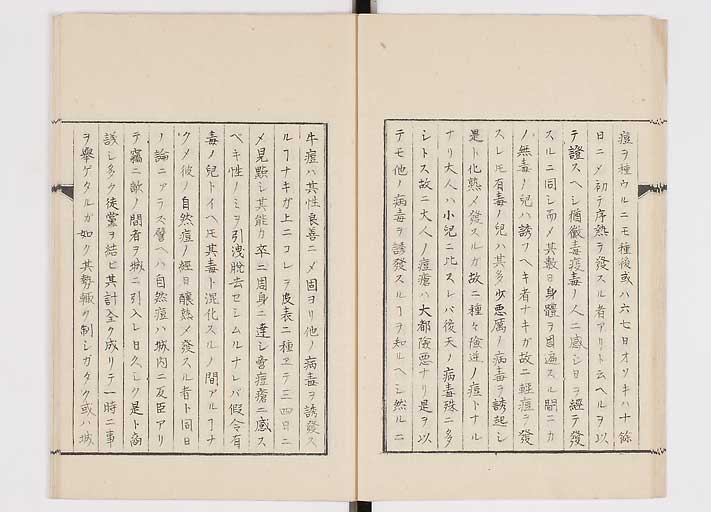 痘ヲ種ウルニモ種後或ハ六七日オソキハ十餘
日ニ〆初テ序熱ヲ發スル者アリト云ヘルヲ以
テ證スヘシ猶黴毒疫毒ノ人ニ感シ日ヲ經テ發
スルニ同シ而〆其數日身體ヲ周遍スル間ニカ
ノ無毒ノ兒ハ誘フヘキ者ナキガ故ニ輕痘ヲ發
スレ𪜈有毒ノ兒ハ其多少悪厲ノ病毒ヲ誘起シ
是ト化熟〆發スルガ故ニ種々險逆ノ痘トナル
ナリ大人ハ小兒ニ比スレバ後天ノ病毒殊ニ多
シトス故ニ大人ノ痘瘡ハ大都險悪ナリ是ヲ以
テモ他ノ病毒ヲ誘發スルヿヲ知ルヘシ然ルニ
牛痘ハ其性良善ニ〆固ヨリ他ノ病毒ヲ誘發ス
ルヿナキガ上ニコレヲ皮表ニ種ヱテ三四日ニ
〆見點シ其能力卒ニ周身ニ達シ嘗痘瘡ニ感ス
ベキ性ノミヲ引洩脱去セシムルナレバ假令有
毒ノ兒トイヘ𪜈其毒ト混化スルノ間アルヿナ
ク〆彼ノ自然痘ノ經日釀熟〆發スル者ト同日
ノ論ニアラス譬ヘハ自然痘ハ城内ニ反臣アリ
テ竊ニ敵ノ間者ヲ城ニ引入レ日久シク是ト商
議シ多ク徒黨ヲ結ヒ其計全ク成リテ一時ニ事
ヲ擧ゲタルガ如ク其勢輙ク制シガタク或ハ城